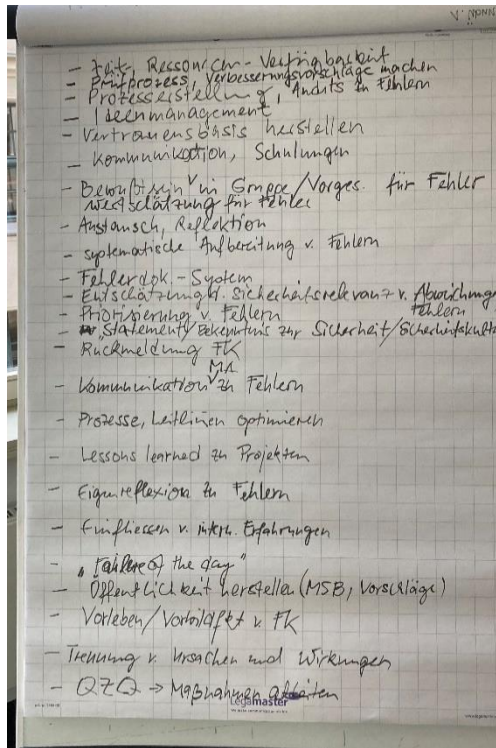 V. MÖNN
- Zeit, Ressourcen-Verfügbarkeit
- Prüfprozess, Verbesserungsvorschläge machen
- Prozesserstellung, Audits zu Fehlern
- Ideenmanagement
- Vertrauensbasis herstellen
- Kommunikation, Schulungen
- Bewußtsein in Gruppe/Vorges. für Fehler
Wertschätzung für Fehler
- Austausch, Reflektion
- systematische Aufbereitung v. Fehlern
- Fehlerdok.-System
- Sicherheitsrelevanz v. Abweichung
Fehlern
- Priorisierung v. Fehlern
- "Statement/Bekenntnis zur Sicherheit/
- Rückmeldung FK
MA
- Kommunikation zu Fehlern
- Prozesse, Leitlinien optimieren
- Lessons learned zu Projekten
- Eigenreflexion zu Fehlern
- Einfliessen v. intern. Erfahrungen
- "Failure of the day"
- Öffentlichkeit herstellen (MSB, Vorschläge)
- Vorleben/Vorbildfkt v. FK
- Trennung v. Ursachen und Wirkungen
- QZQ → Maßnahmen
Legamaster